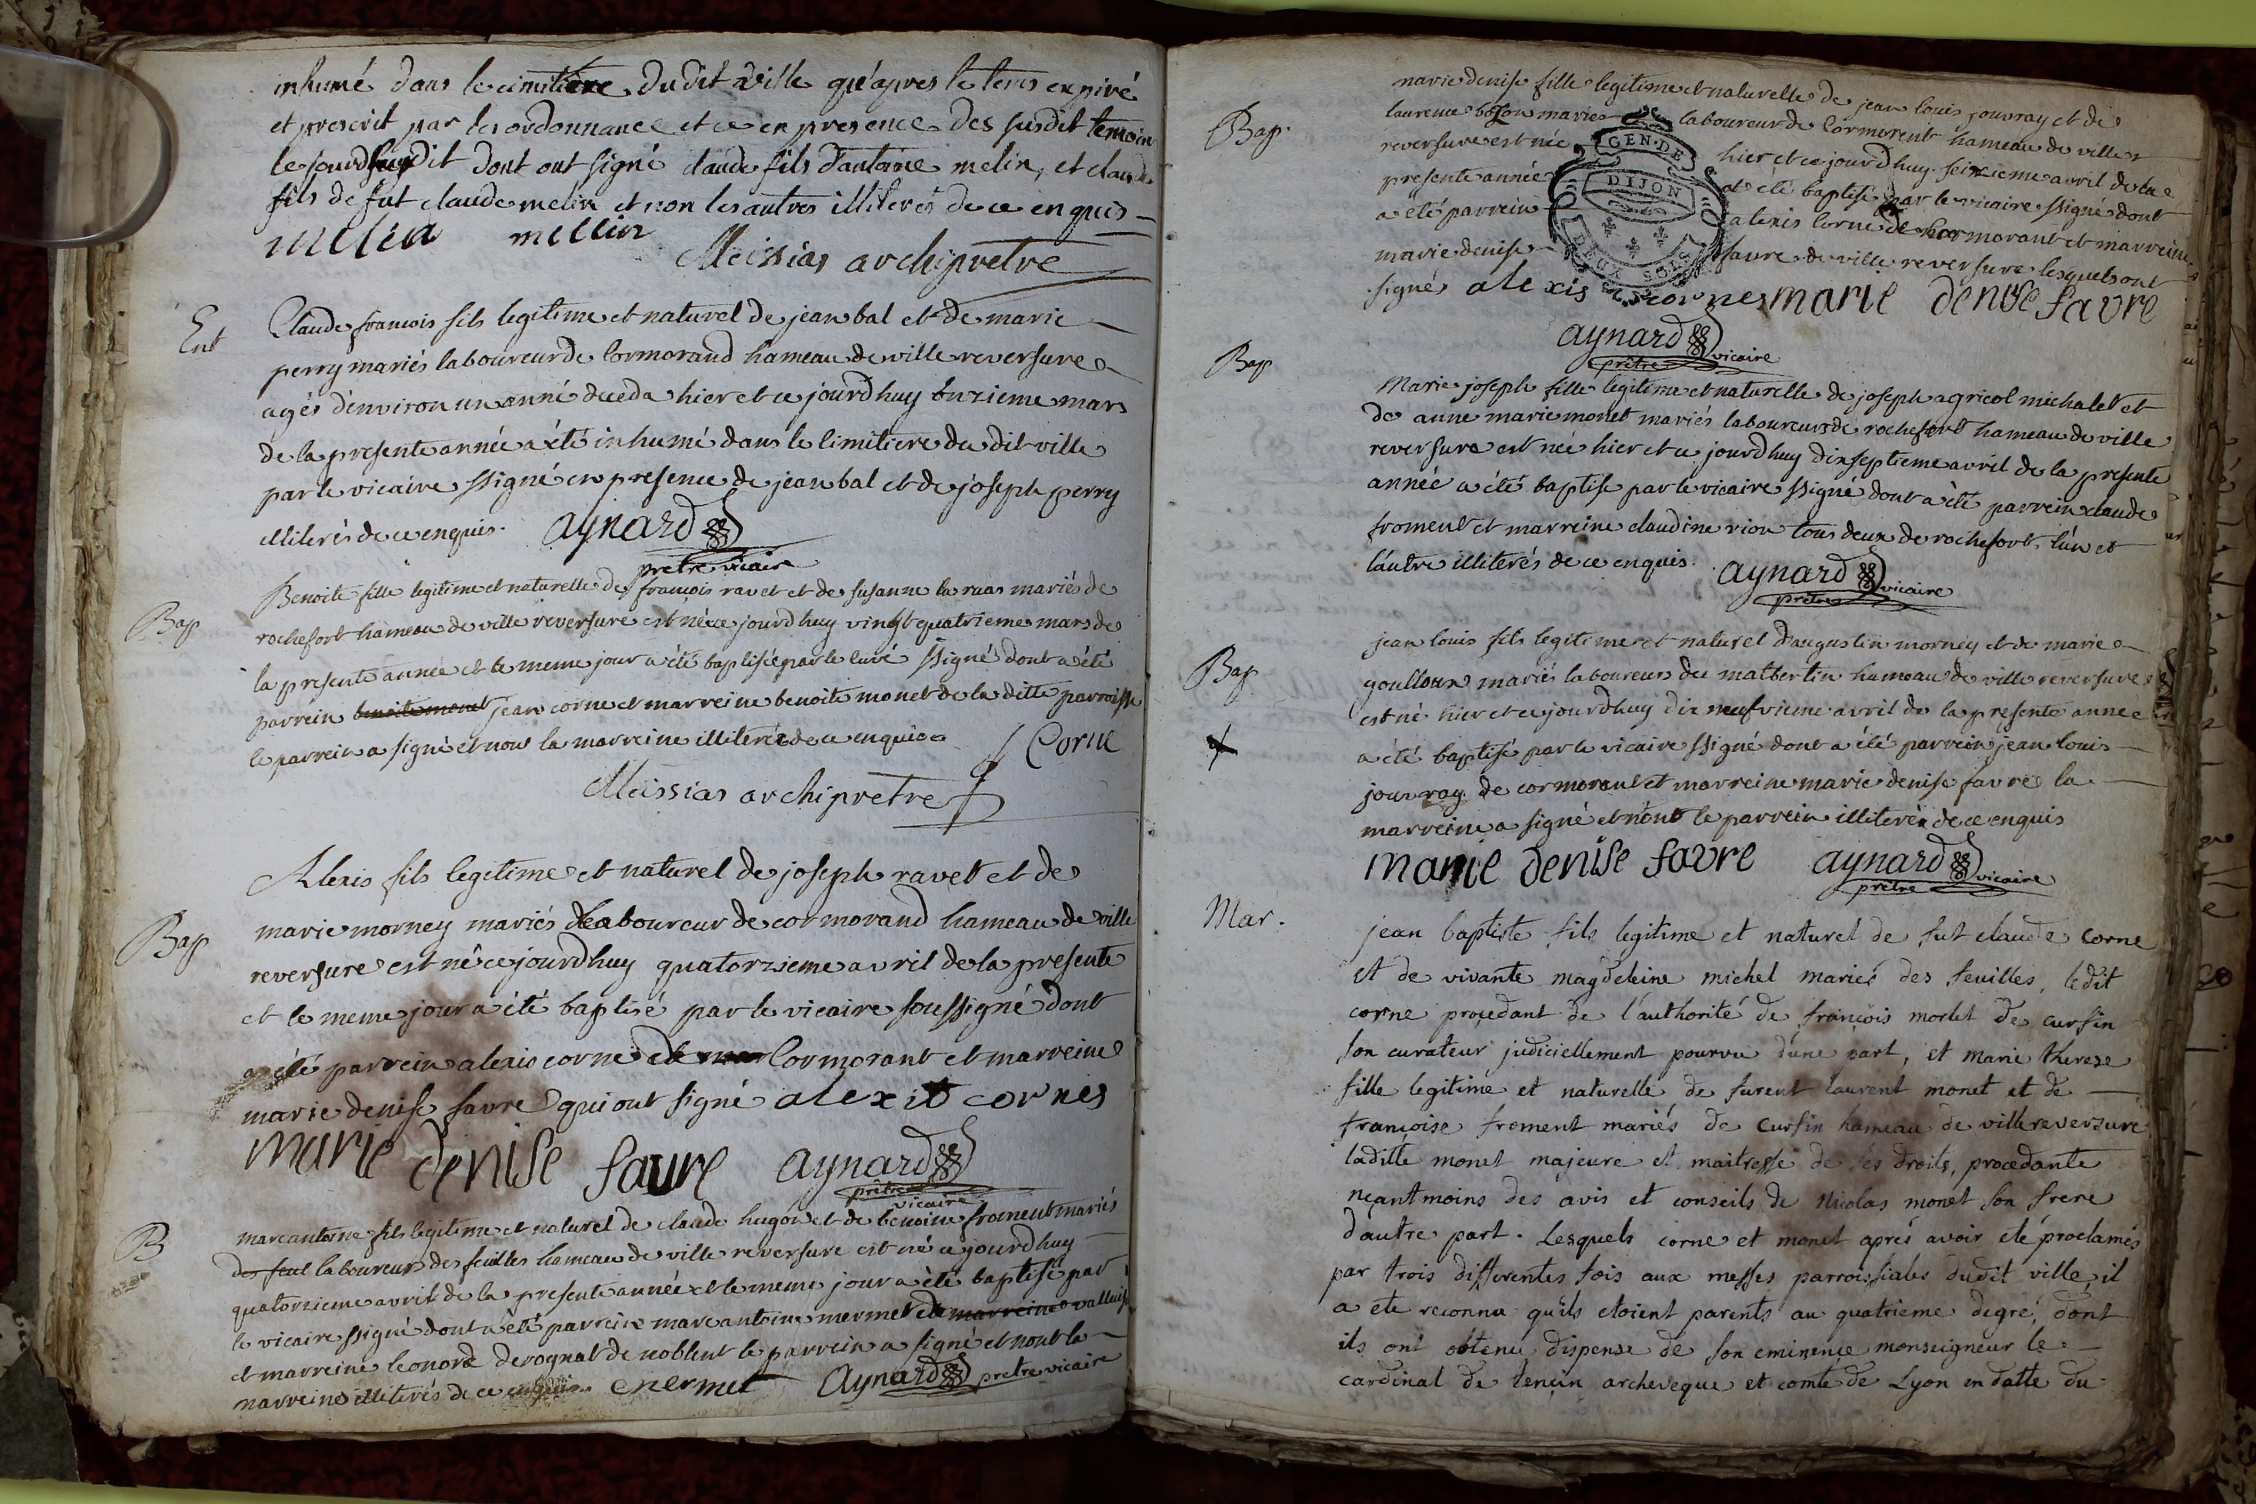 inhumé dans le cimitiere dudit ville qu'apres le tems expiré
et prescrit par les ordonnance et ce en presence des susdit temoin
le jourdhuy dit dont ont signé claude fils d'antoine melin, et claude
fils de fut claude melin et non les autres illiterés de ce enquis
melin mellin
Meissias archipretre
Ent
Claude francois fils legitime et naturel de jean bal et de marie
perry mariés laboureur de Cormorand hameau de ville reversure
agés d'environ un anné hier et ce jourdhuy mars
de la presente année a été inhumé dans le cimitiere du dit ville
par le vicaire ssigné en presence de jean bal et de joseph perry
illiterés de ce enquis. aynard
pretre vicaire
Bap
Benoite fille legitime et naturelle de francois ravet et de susanne mariés de
rochefort hameau de ville reversure est née ce jourdhuy vingt quatrieme mars de
la presente année et le meme jour a été baptisée par le curé ssigné dont a été
parrein benoite monet jean corne et marreine benoite monet de la ditte parroisse
le parrein a signé et nous la marreine illiterée de ce enquis Corne
Meissias archipretre
Alexis fils legitime et naturel de joseph ravet et de
Bap
marie morney mariés laboureur de cormorand hameau de ville
reversure est né ce jourdhuy quatorzieme avril de la presente
et le meme jour a été baptisé par le vicaire soussigné dont
a été parrein alexis corne de Cormorant et marreine
marie denise favre qui ont signé alexis cornes
marie denise favre aynard
prêtre
vicaire
B
marc antoine fils legitime et naturel de claude hugon et de benoine froment mariés
des feul laboureur des feuilles hameau de ville reversure est né ce jourdhuy
quatorzieme avril de la presente année et le meme jour a été baptisé par
le vicaire ssigné dont a été parrein marc antoine mermet de marreine
et marreine leonore derognat de noblent le parrein a signé et nont la
marreine illiterés de ce enquis. aynard pretre vicaire
Bap.
marie denise fille legitime et naturelle de jean louis jouvray et de
laurence bozon mariés laboureur de Cormorent hameau de ville
reversure est née hier et ce jourdhuy seizieme avril de la
presente année a été baptisé par le vicaire ssigné dont
a été parrein alexis corne de Cormorant et marreine
marie denise favre de ville reversure lesquels ont
GEN. DE
DIJON
DEUX SOLS
signé alexis cornes marie denise favre
aynard
prêtre vicaire
Bap
Marie joseph fille legitime et naturelle de joseph agricol michalet et
de anne marie monet mariés laboureurs de rochefort hameau de ville
reversure est née hier et ce jourdhuy dixseptieme avril de la presente
année a été baptise par le vicaire ssigné dont a été parrein claude
froment et marreine claudine rion tous deux de rochefort, l'un et
l'autre illiterés de ce enquis. aynard
prêtre vicaire
Bap
jean louis fils legitime et naturel d'augustin morney et de marie
goulloux mariés laboureurs du malbertin hameau de ville reversure
est né hier et ce jourdhuy dix neufvieme avril de la presente année
a été baptisé par le vicaire ssigné dont a été parrein jean louis
jouvray de cormorant et marreine marie denise favre la
marreine a signé et nont le parrein illiteré de ce enquis
marie denise favre aynard
prêtre vicaire
Mar.
jean baptiste fils legitime et naturel de fut claude corne
et de vivante magdeleine michel mariés des feuilles, ledit
corne procedant de l'authorité de françois morlet de cursin
son curateur judiciellement pourvu d'une part, et marie therese
fille legitime et naturelle de furent laurent monet et de
françoise froment mariés de cursin hameau de ville reverzure
laditte monet majeure et maitresse de ses droits, procedante
neantmoins des avis et conseils de nicolas monet son frere
d'autre part. Lesquels corne et monet aprés avoir eté proclamés
par trois differentes fois aux messes parroissiales dudit ville, il
a été reconnu qu'ils etoient parents au quatrieme degré, dont
ils ont obtenu dispense de son eminence monseigneur le
cardinal de tencin archeveque et comte de Lyon en datte du